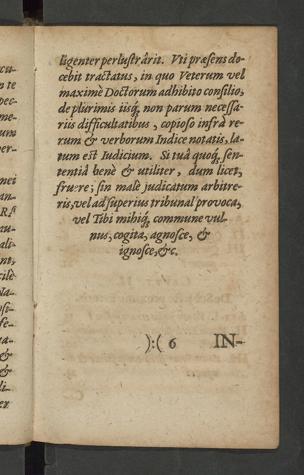 ligenter perlustrârit. Vti præsens do-
cebit tractatus, in quo Veterum vel
maximè Doctorum adhibito consilio,
de plurimis iisq́; non parum necessa-
riis difficultatibus, copioso infrà re-
rum & verborum Indice notatis, la-
tum est Iudicium. Si tuâ quoq́; sen-
tentiâ benè & utiliter, dum licet,
fruere; sin malè judicatum arbitre-
ris, vel ad superius tribunal provoca,
vel Tibi mihiq́; commune vul-
nus, cogita, agnosce, &
ignosce, &c.
):( 6 IN-